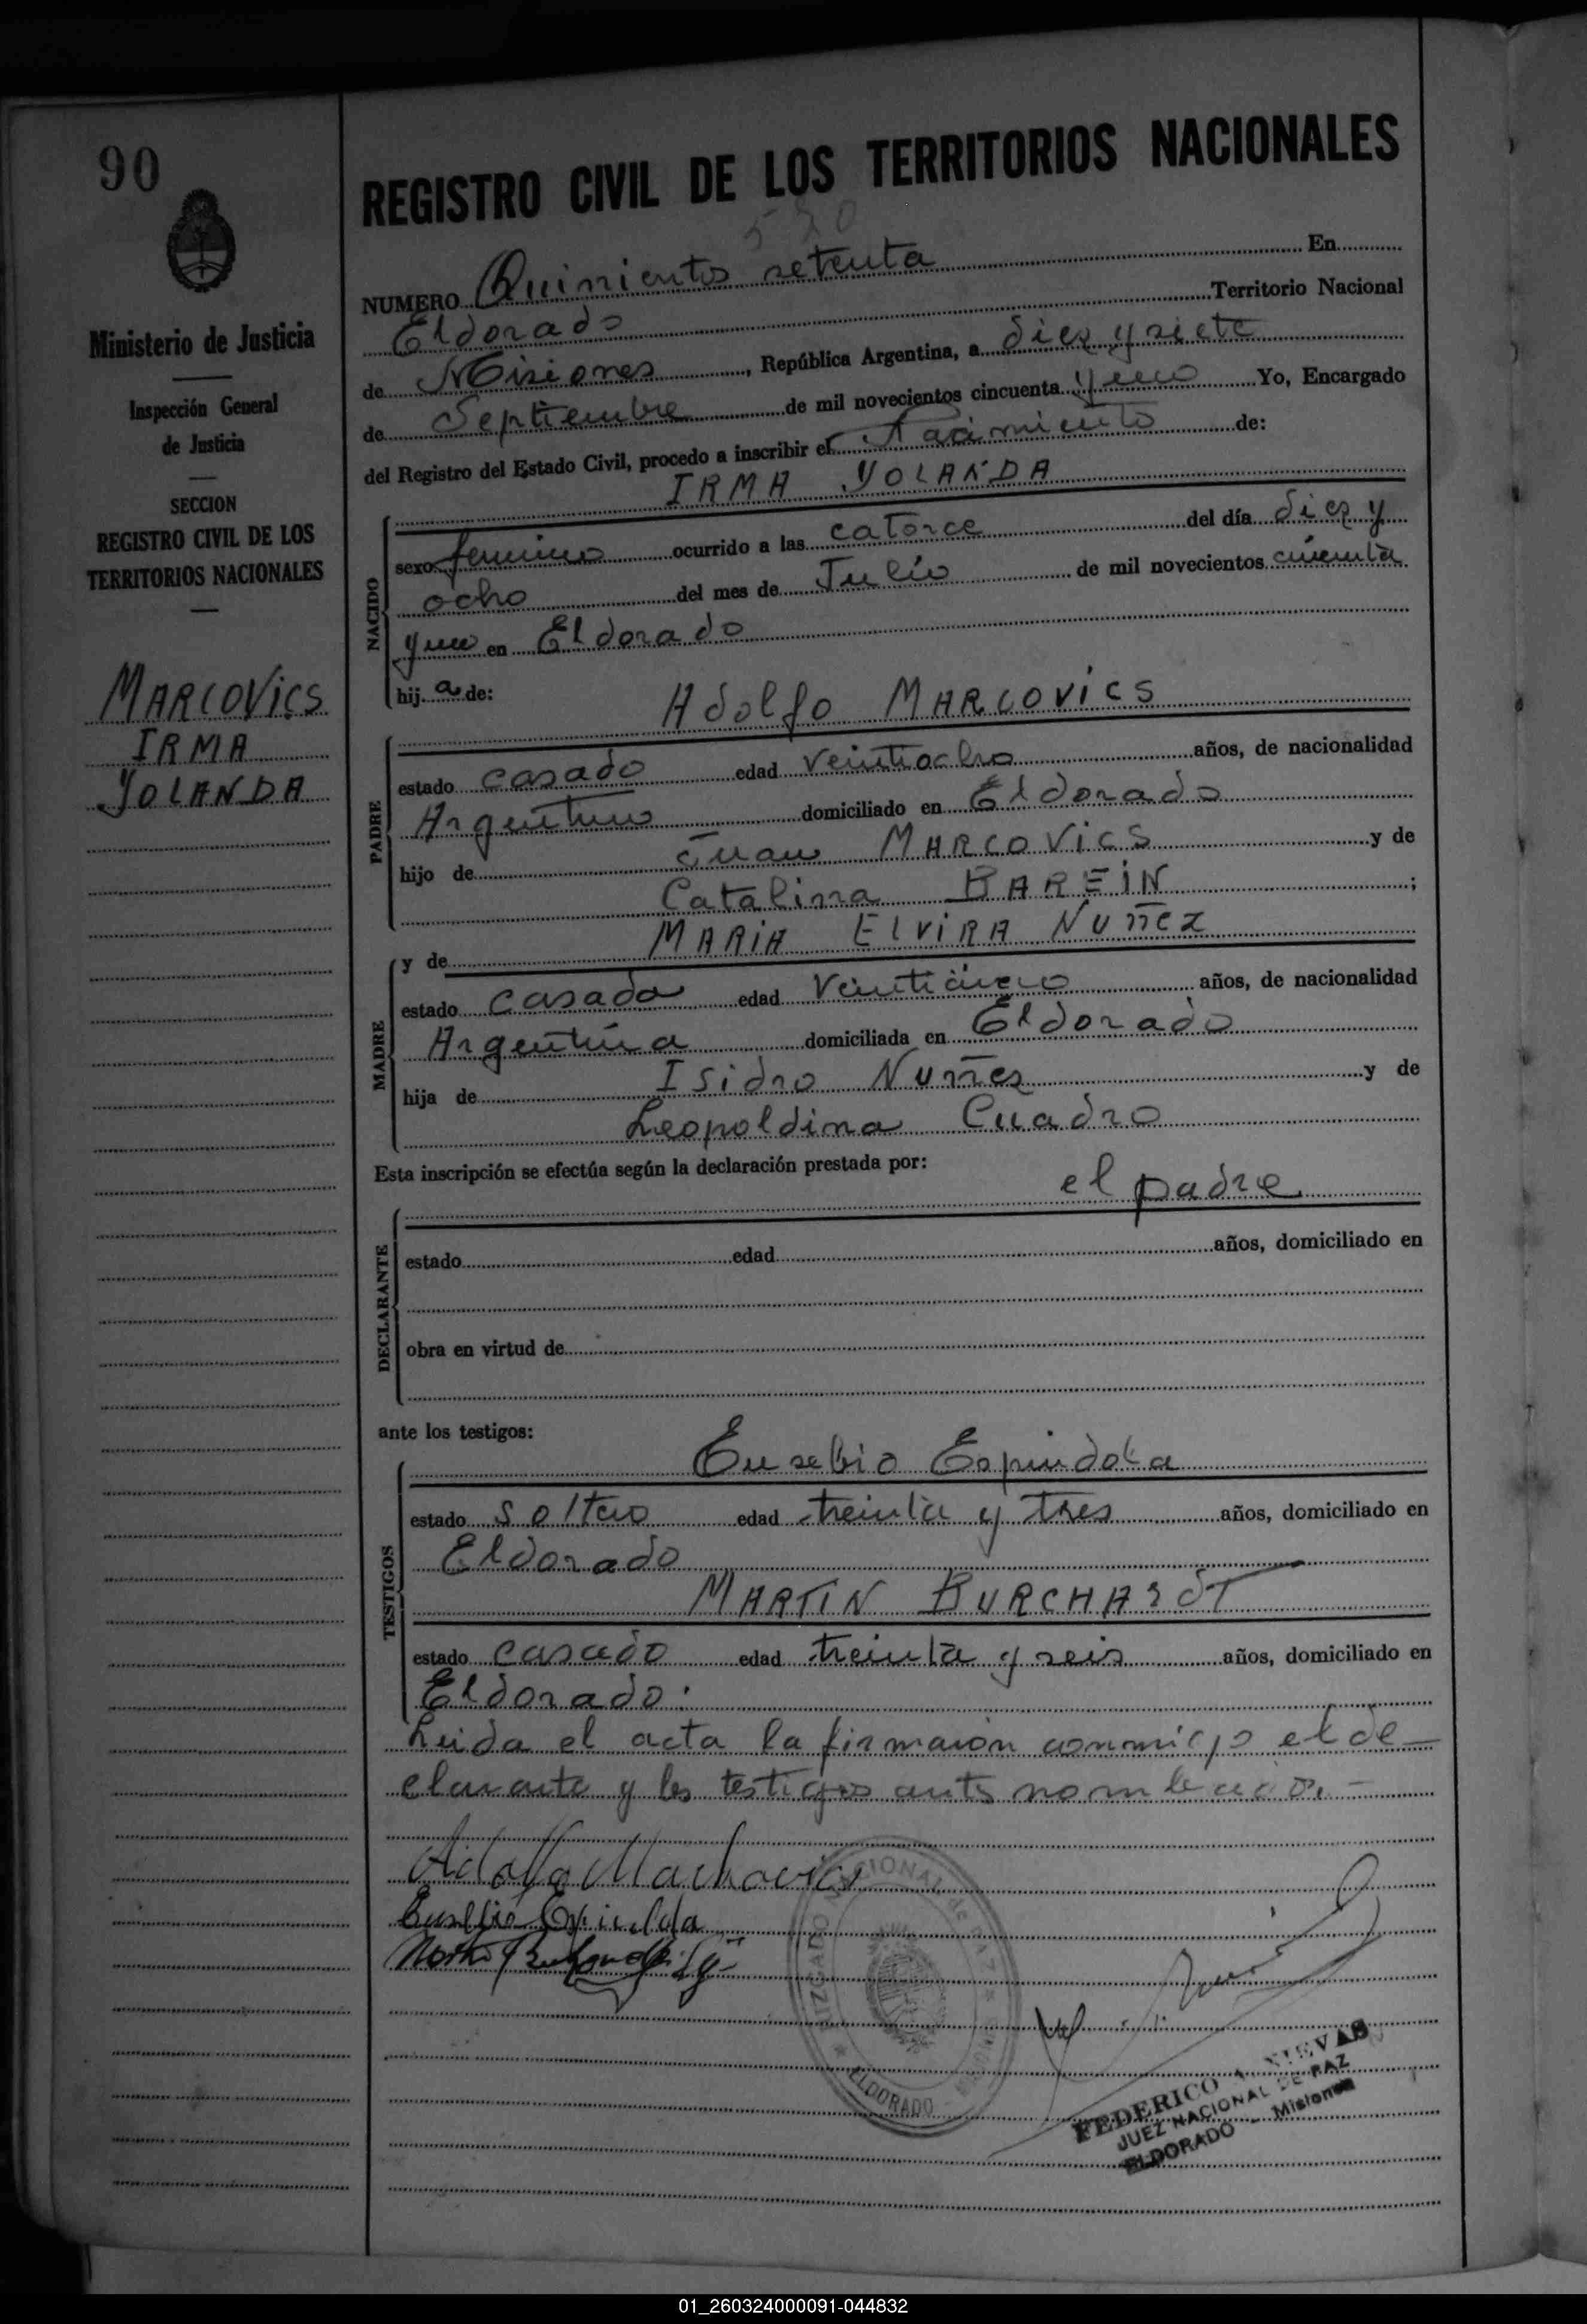 90
Ministerio de Justicia
Inspección General
de Justicia
SECCION
REGISTRO CIVIL DE LOS
TERRITORIOS NACIONALES
MARCOVICS
IRMA
YOLANDA
REGISTRO CIVIL DE LOS TERRITORIOS NACIONALES
570
NUMERO Quinientos setenta En
Eldorado Territorio Nacional
de Misiones, República Argentina, a diez y siete
de Septiembre de mil novecientos cincuenta y uno Yo, Encargado
del Registro del Estado Civil, procedo a inscribir el Nacimiento de:
IRMA YOLANDA
NACIDO
sexo femenino ocurrido a las catorce del día diez y
ocho del mes de Julio de mil novecientos cincuenta
y uno en Eldorado
hij a de:
Adolfo MARCOVICS
PADRE
estado casado edad veintiocho años, de nacionalidad
Argentino domiciliado en Eldorado
hijo de Juan MARCOVICS y de
Catalina BAREIN ;
y de MARIA ELVIRA NUÑEZ
MADRE
estado casada edad veinticinco años, de nacionalidad
Argentina domiciliada en Eldorado
hija de Isidro Nuñes y de
Leopoldina Cuadro
Esta inscripción se efectúa según la declaración prestada por:
el padre
DECLARANTE
estado edad años, domiciliado en
obra en virtud de
ante los testigos:
Eusebio Espindola
TESTIGOS
estado soltero edad treinta y tres años, domiciliado en
Eldorado
MARTIN BURCHARDT
estado casado edad treinta y seis años, domiciliado en
Eldorado.
Leida el acta la firmaron conmigo el de-
clarante y los testigos antes
Eusebio Espindola
JUZGADO NACIONAL de PAZ
ELDORADO
FEDERICO A. NIEVAS
JUEZ NACIONAL DE PAZ
ELDORADO - Misiones
01_260324000091-044832